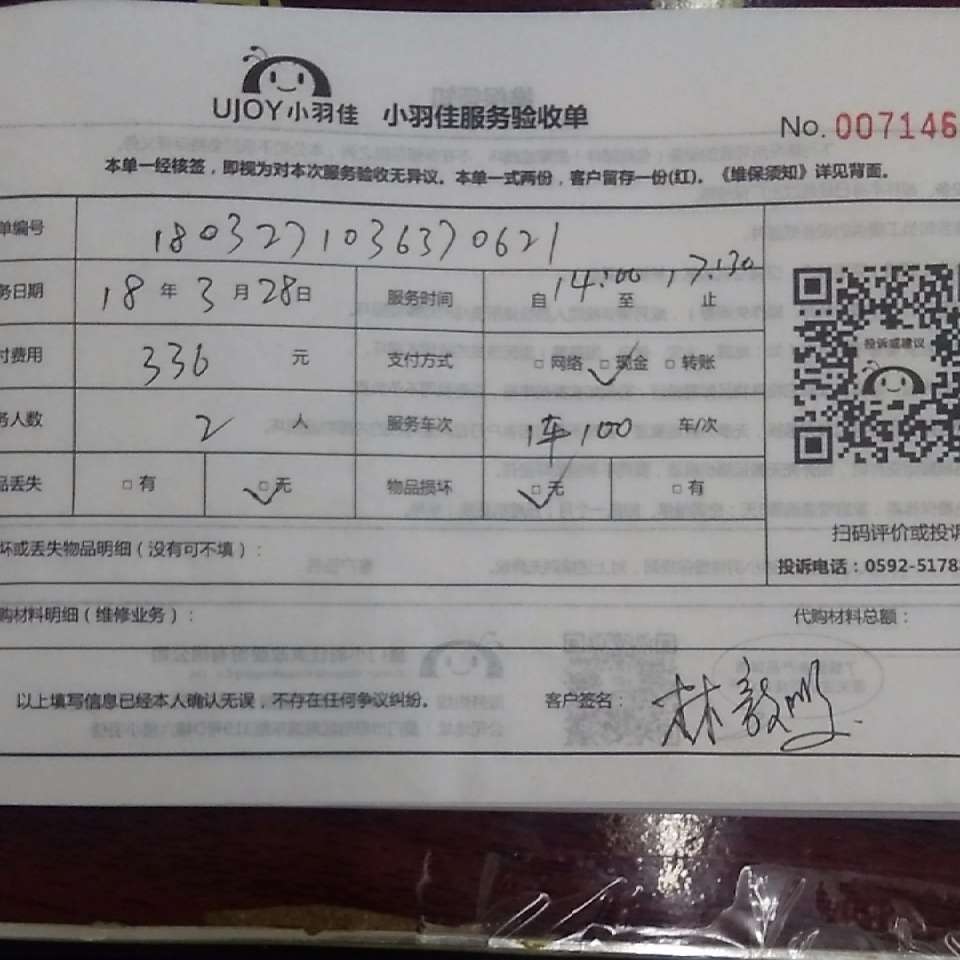 UJOY小羽佳 小羽佳服务验收单
No. 007146
本单一经核签，即视为对本次服务验收无异议。本单一式两份，客户留存一份(红)。《维保须知》详见背面。
单编号 1803271036370621
务日期 18 年 3 月 28 日 服务时间 自 14:00 至 17:30 止
付费用 336 元 支付方式 □ 网络 □ 现金 □ 转账
务人数 2 人 服务车次 1车100 车/次
品丢失 □ 有 □ 无 物品损坏 □ 无 □ 有
投诉或建议
扫码评价或投诉
坏或丢失物品明细（没有可不填）：
投诉电话：0592-5178
购材料明细（维修业务）： 代购材料总额：
以上填写信息已经本人确认无误，不存在任何争议纠纷。 客户签名：林毅鹏